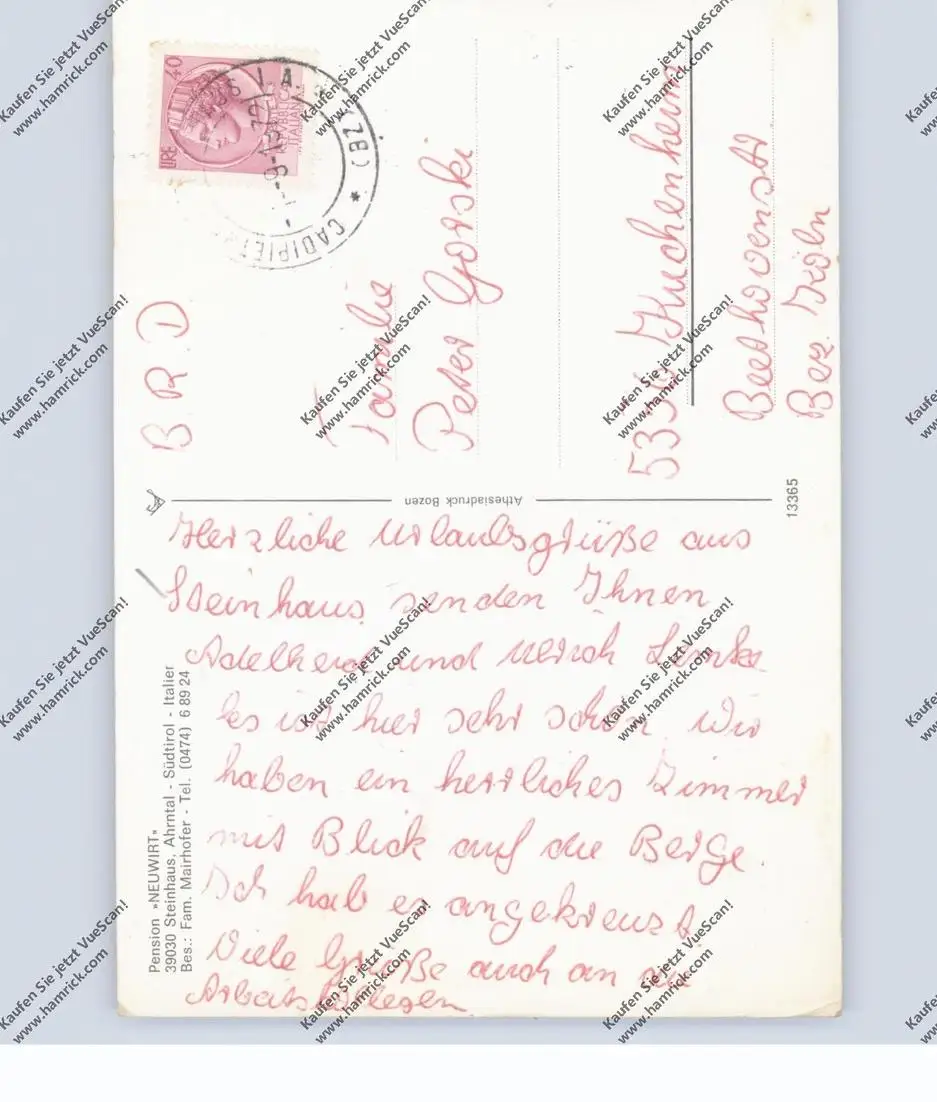 Herzliche Urlaubsgrüße aus
Steinhaus senden Ihnen
Adelheid und Ulrich
es ist hier sehr schön. Wir
haben ein herrliches Zimmer
mit Blick auf die Berge.
Ich hab es angekreuzt.
Viele Grüße auch an die
Arbeitskollegen
Pension »NEUWIRT«
39030 Steinhaus, Ahrntal - Südtirol - Italien
Bes.: Fam. Mairhofer - Tel. (0474) 6 89 24
Athesiadruck Bozen
13365
B R D
Familie
Peter Gorski
Kuchenheim
Beethovenstr
Bez. Köln
LIRE 40
(BZ) * CADIPIET
Kaufen Sie jetzt VueScan!
www.hamrick.com